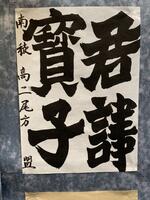 君諱
寶子
南稜 高二 尾方 盟